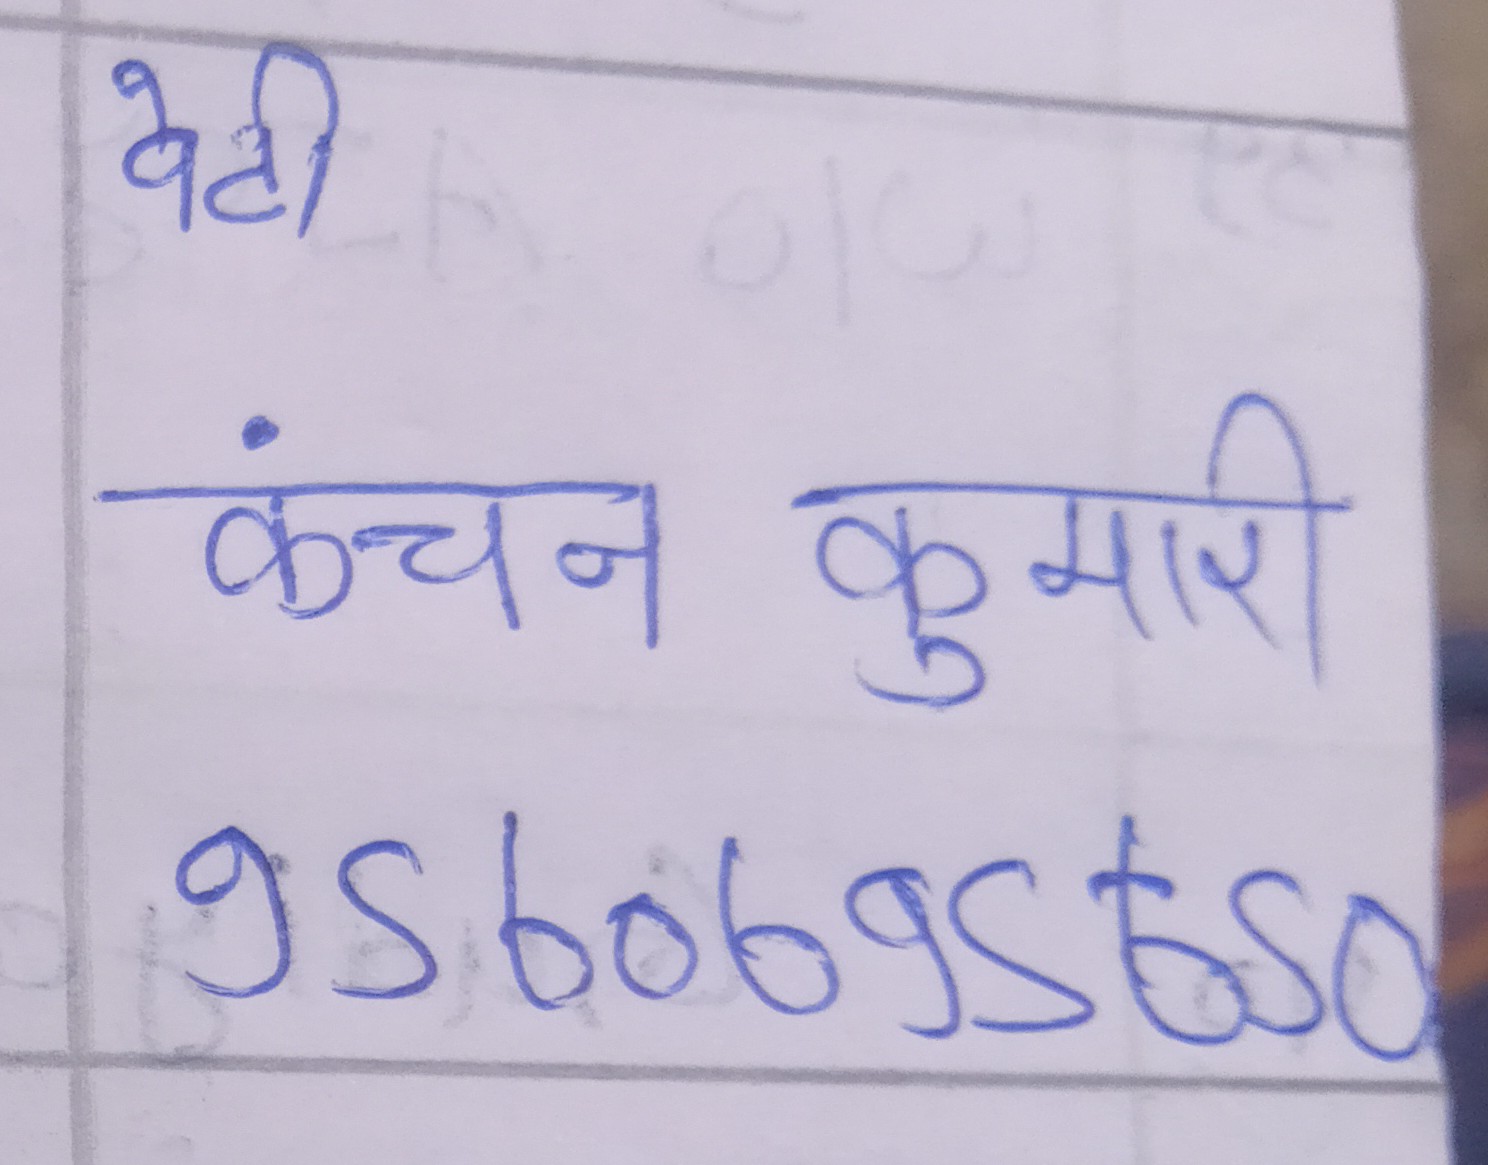 वेटी
कंचन कुमारी
9560695650